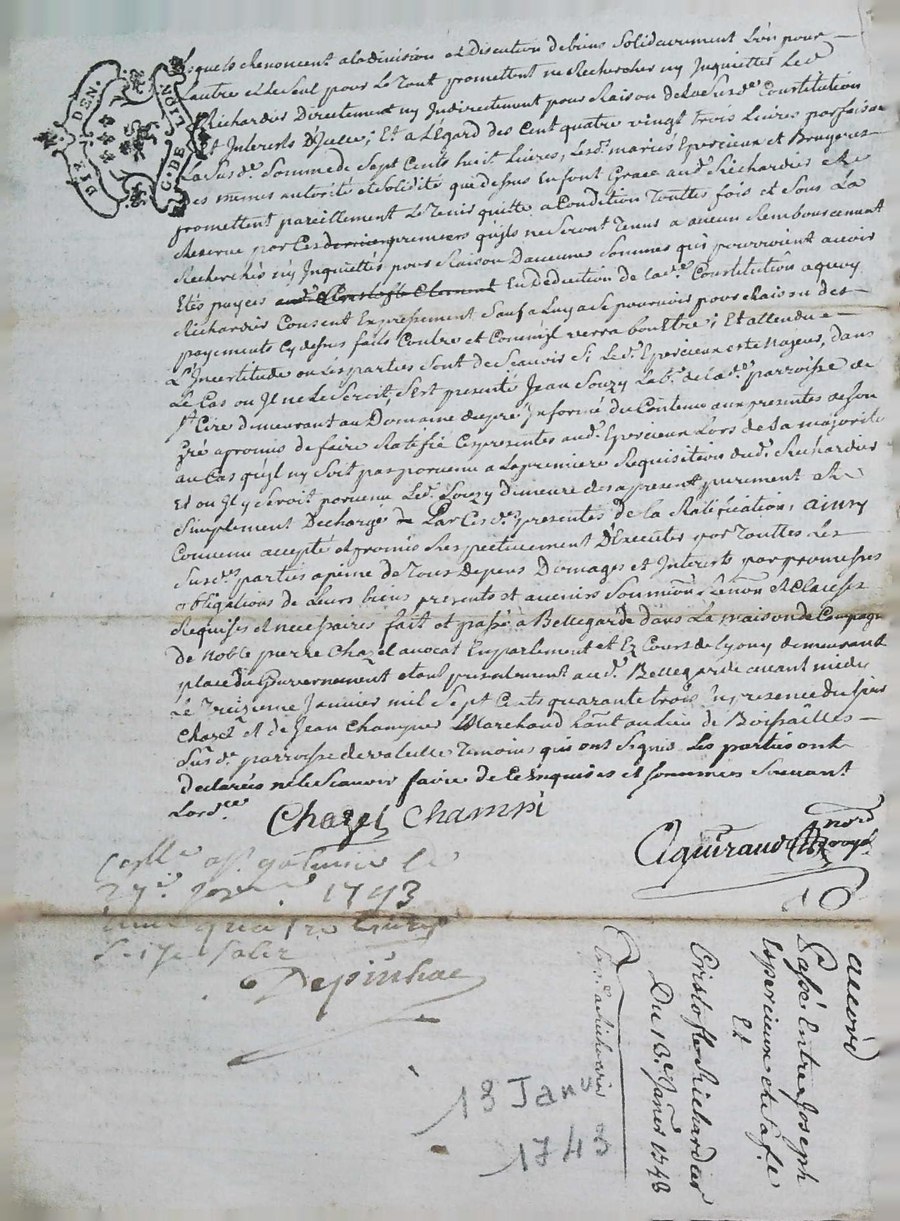 DIX DEN. G. DE LION
lesquels Renoncent a la division et Discution de biens Solidairement L'un pour
L'autre et le Seul pour le Tout promettent ne Rechercher ny Inquietter Led.
Richardier Directement ny Indirectement pour Raison de la Susd.e Constitution
Et Interests D'Icelle; Et a L'Egard des Cent quatre vingt Trois Livres parfaisant
La Susd.e Somme de Sept Cents huit Livres, Lesd. mariés Epercieux et Bruyeres
Des memes autorité et Solidité que dessus En font Grace aud. Richardier et
promettent pareillement Le Tenir quitte a Condition Touttes fois et Sous La
Reserve par les derniers premiers qu'ils ne Seront Tenus a aucun Remboursement
Recherchés ny Inquiettés pour Raison D'aucunes Sommes qui pourroient avoir
Etés payéés aud. Christofle Clement En Deduction de lad.e Constitution a quoy
Richardier Consent Expressement Sauf a Luy a Se pourvoir pour Raison des
payements Cy dessus faits Contre et Comm'il verra bon Etre; Et attendu
L'Incertitude ou Les parties Sont de Scavoir Si Led. Epercieux est Majeur, dans
Le Cas ou Il ne Le Seroit, S'est presenté Jean Souzy Lab.r de lad.e parroisse de
S.t Cire demeurant au Domaine du pré Informé du Contenu aux presentes de Son
Gré a promis de faire Ratifié Ces presentes aud. Epercieux Lors de Sa majorité
au Cas qu'il ny Soit pas parvenu a La premiere Requisition dud. Richardier
Et ou Il y Seroit parvenu Led. Souzy demeure des a present purement et
Simplement Dechargé de Par Ces d.es presentes de la Ratification, ainsy
Convenu accepté et promis Respectivement D'Executer par Touttes Les
Susd.es parties a peine de Tous Depens Domages et Interests par promesses
obligations de Leurs biens presents et avenirs Soumissions Renon.on et Clauses
Requises et necessaires fait et passé a Bellegarde dans La maison de Campagne
De Noble pierre Chazel avocat En parlement et Ez Cours de Lyon y demeurant
place du Gouvernement etant presentement aud. Bellegarde avant midy
Le Treizieme Janvier mil Sept Cents quarante trois En presence dud. Sieur
Chazel et de Jean Champié Marchand hant au Lieu de Boissailles
Susd.e parroisse de valeille Temoins qui ont Signé Les parties ont
Declarées ne le Scavoir faire de Ce Enquises et Sommées Suivant
Lord.ce
Chazel Champi
Aguiraud
Not. Royal
Con.llé a S.t galmier le
27.e Janv. 1743
Reçu quatre livres
Seize Sols
Depinhac
accord
Passé Entre Joseph
Esparcieux et Sa fe
Et
Cristofle Richardier
Du 13.e Janvier 1743
13 Janv
1743